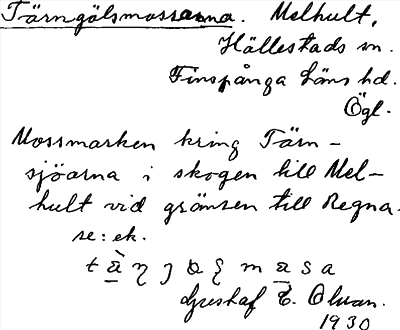 Tärngölsmossarna. Melhult,
Hällestads sn.
Finspånga läns hd.
Ögl.
Mossmarken kring Tärn-
sjöarna i skogen till Mel-
hult vid gränsen till Regna.
se: ek.
Gustaf E. Olsson.
1930